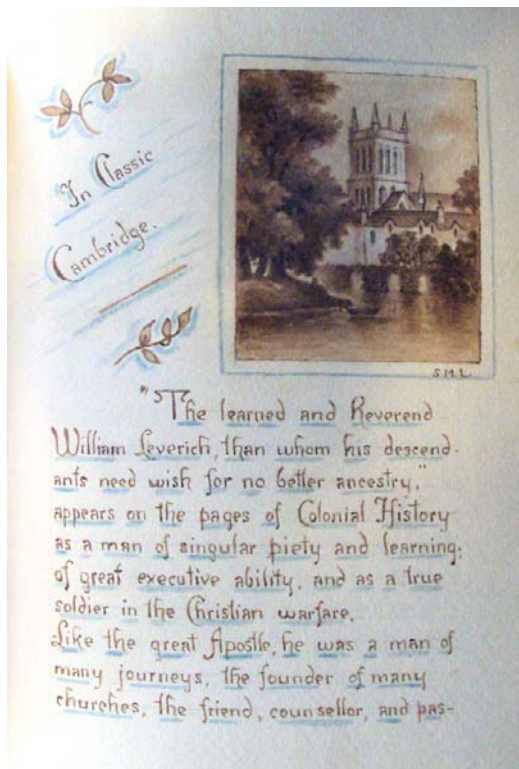 In Classic
Cambridge.
S M L
"The learned and Reverend
William Leverich, than whom his descend-
ants need wish for no better ancestry,"
appears on the pages of Colonial History
as a man of singular piety and learning;
of great executive ability, and as a true
soldier in the Christian warfare.
Like the great Apostle, he was a man of
many journeys, the founder of many
churches, the friend, counsellor, and pas-